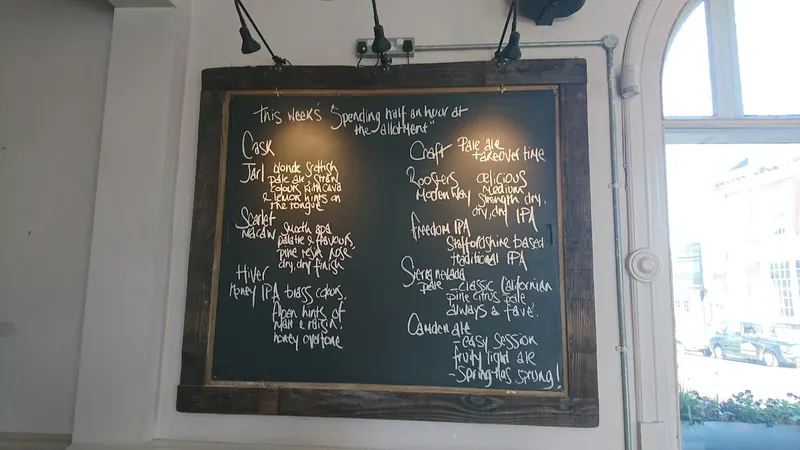 This week's "Spending half an hour at
the allotment"
Cask
Jarl blonde Scottish
pale ale, straw
colour with cava
& lemon hints on
the tongue
Scarlet
Macaw Smooth
palate & flavours,
pine resin nose
dry, dry finish
Hiver
Honey IPA brass colour,
Aben hints of
malt & raisin,
honey overtone
Craft Pale ale
takeover time
Roosters delicious
Modern Way medium
strength dry,
dry, dry IPA
Freedom IPA
Staffordshire based
traditional IPA
Sierra nevada
pale - classic Californian
pine citrus pale
always a fave.
Camden ale
- easy session
fruity light ale
- Spring has sprung!